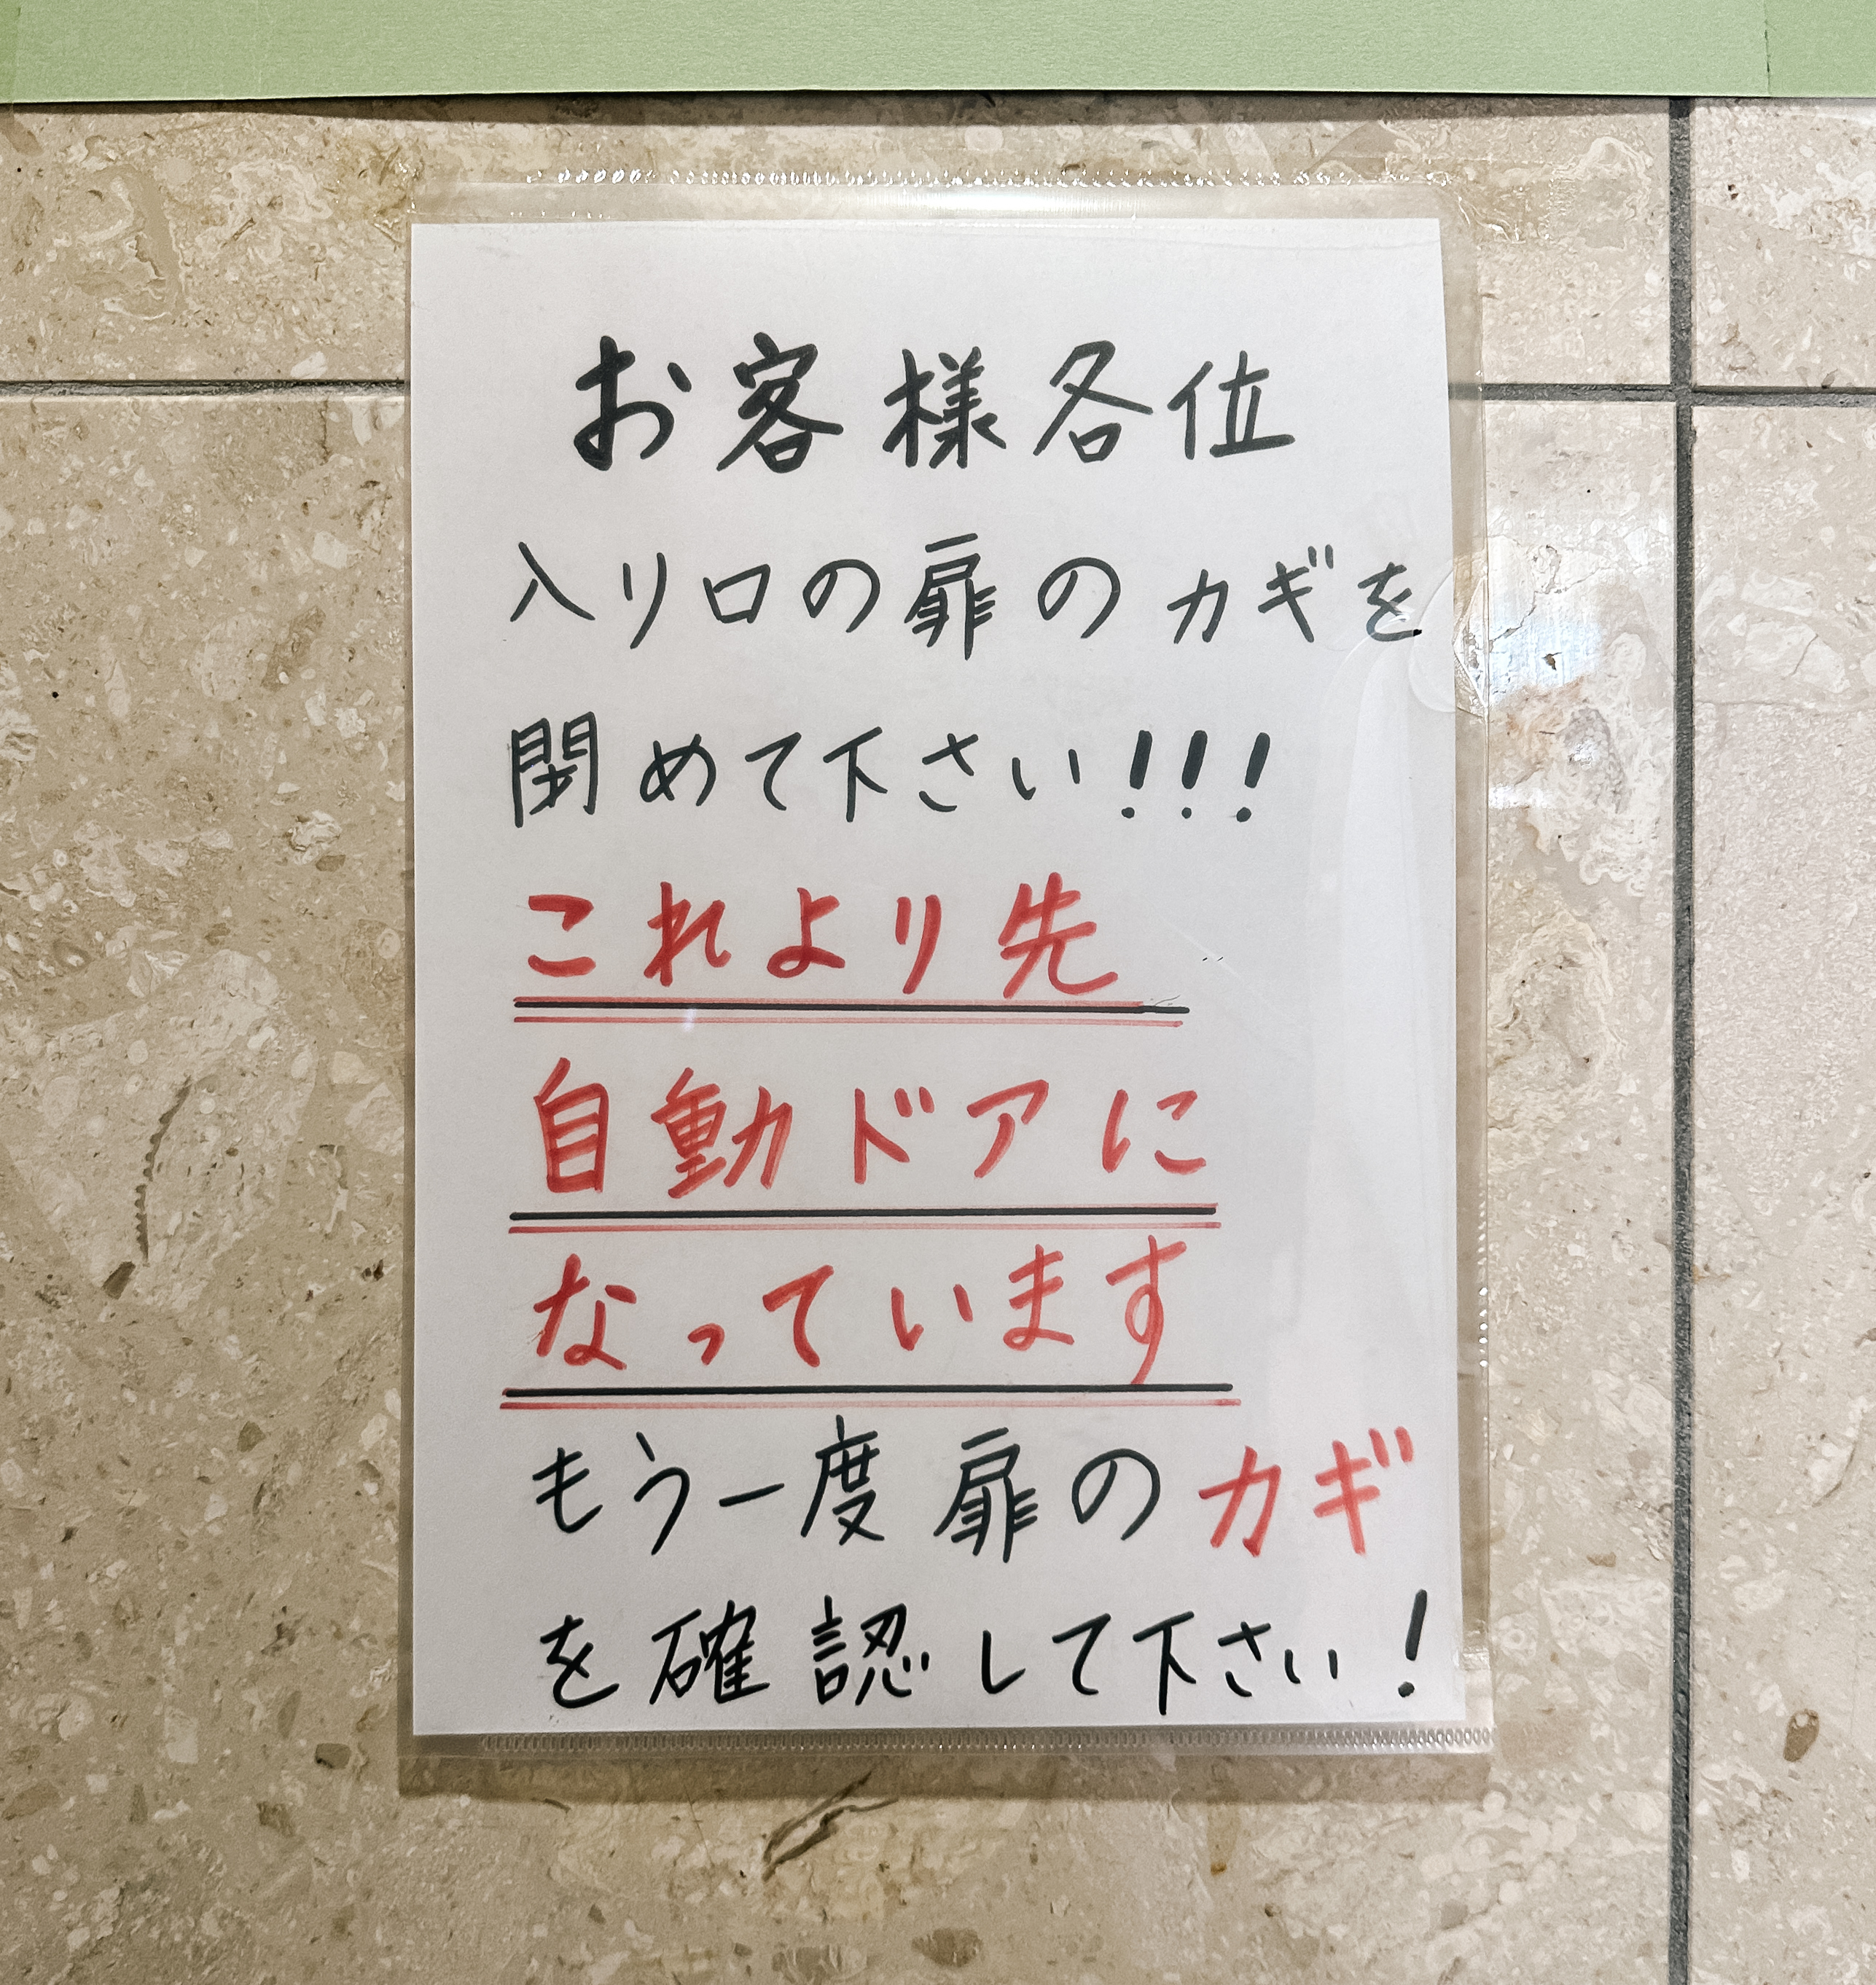 お客様各位
入り口の扉のカギを
閉めて下さい!!!
これより先
自動ドアに
なっています
もう一度扉のカギ
を確認して下さい!